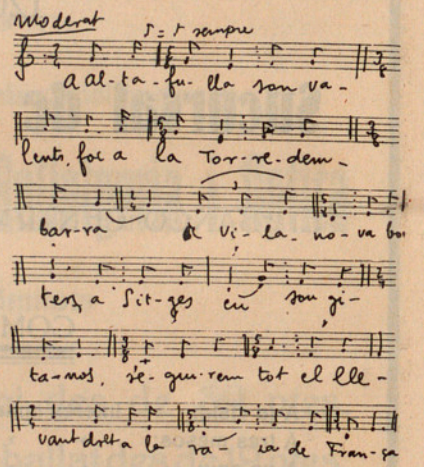 Moderat
♪ = ♪ sempre
A Al-ta-fu-lla son va-
lents, foc a la Tor-re-dem-
bar-ra A Vi-la-no-va bo
ters, a Sit-ges són gi-
ta-nos, se-gui-rem tot el lle-
vant dret a la ra-ia de Fran-ça